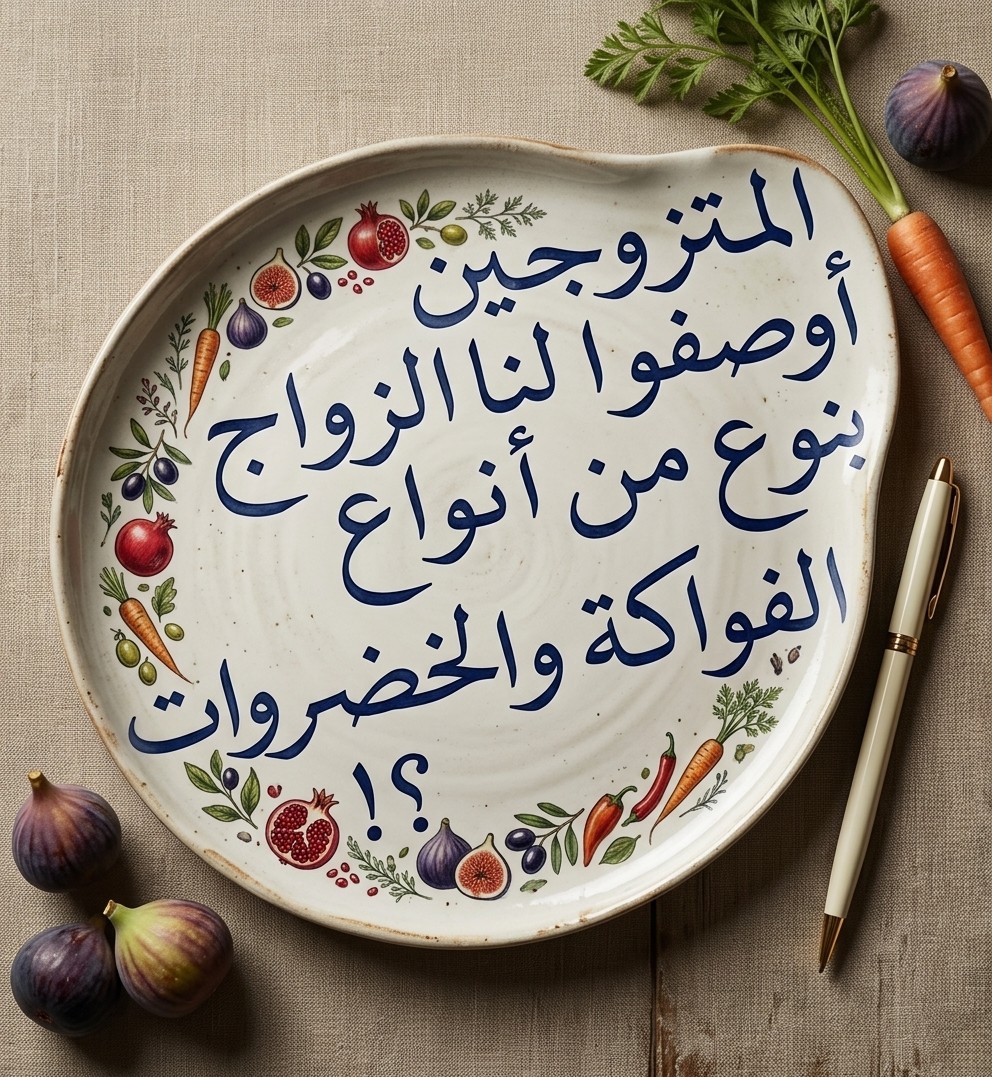 المتزوجين
أوصفوا لنا الزواج
بنوع من أنواع
الفواكة والخضروات
؟!